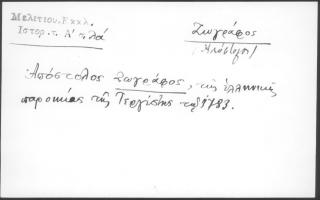 Μελετίου. Εκκλ.
Ιστορ. τ. Α' τλά
Ζωγράφος
(Απόστολος)
Απόστολος Ζωγράφος, της ελληνικής
παροικίας της Τεργέστης τω 1783.